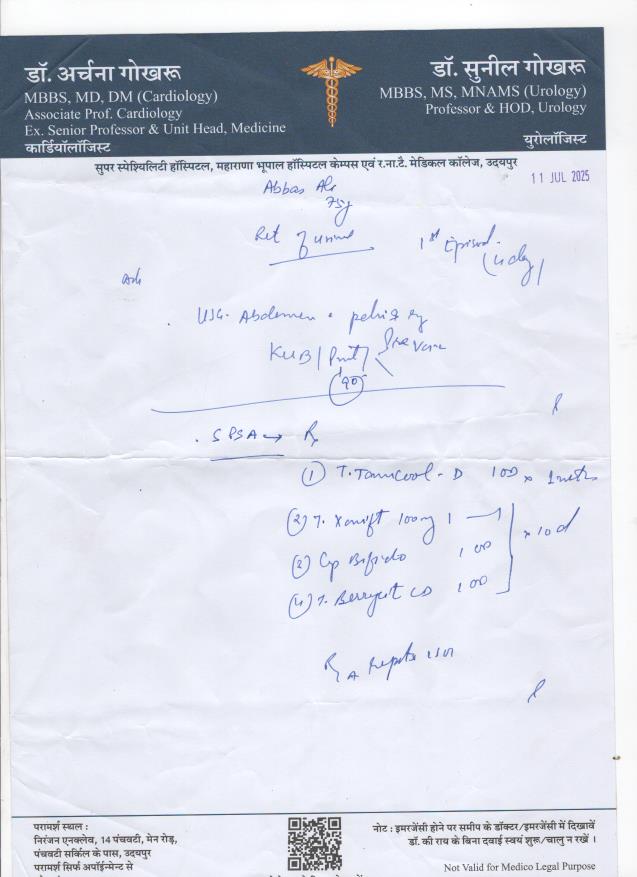 डॉ. अर्चना गोखरू
MBBS, MD, DM (Cardiology)
Associate Prof. Cardiology
Ex. Senior Professor & Unit Head, Medicine
कार्डियॉलॉजिस्ट
डॉ. सुनील गोखरू
MBBS, MS, MNAMS (Urology)
Professor & HOD, Urology
युरोलॉजिस्ट
सुपर स्पेश्यिलिटी हॉस्पिटल, महाराणा भूपाल हॉस्पिटल केम्पस एवं र.ना.टै. मेडिकल कॉलेज, उदयपुर
11 JUL 2025
Abbas Ali
75y
Ret of urine 1st Episode
USG. Abdomen & pelvis
KUB / Prost /
90
S PSA → Rx
(1) T. Tamcool-D 1 OD x
(2) T. 100mg 1
Cap Bifido 1 OD
(4) T. 1 OD
x 10d
परामर्श स्थल :
निरंजन एनक्लेव, 14 पंचवटी, मेन रोड़,
पंचवटी सर्किल के पास, उदयपुर
परामर्श सिर्फ अपॉईन्मेन्ट से
नोट : इमरजेंसी होने पर समीप के डॉक्टर/इमरजेंसी में दिखावें
डॉ. की राय के बिना दवाई स्वयं शुरू/चालु न रखें ।
Not Valid for Medico Legal Purpose